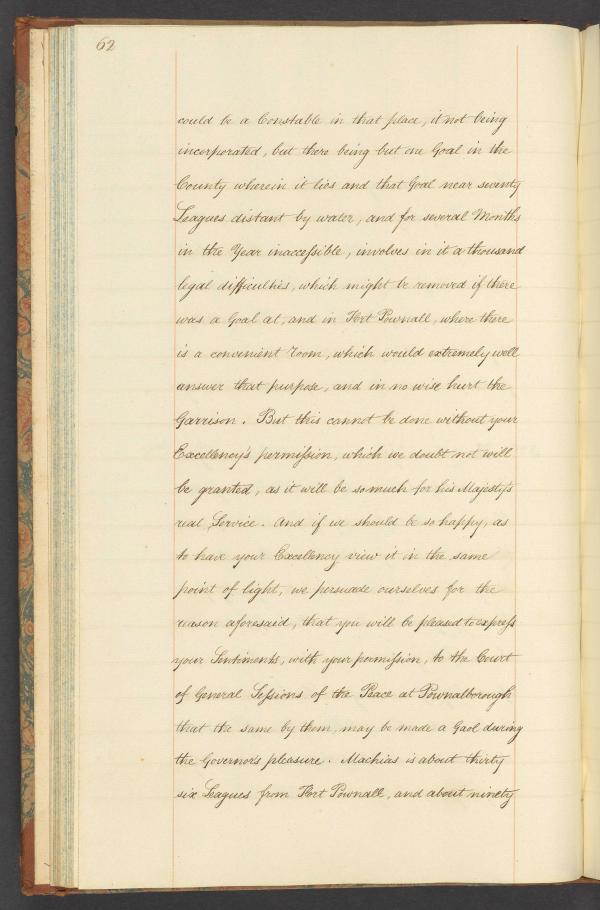 62
could be a Constable in that place, it not being
incorporated, but there being but one Goal in the
County wherein it lies and that Goal near seventy
Leagues distant by water, and for several Months
in the Year inaccessible, involves in it a thousand
legal difficulties, which might be removed if there
was a Goal at, and in Fort Pownall, where there
is a convenient room, which would extremely well
answer that purpose, and in no wise hurt the
Garrison. But this cannot be done without your
Excellency's permission, which we doubt not will
be granted, as it will be so much for his Majesty's
real Service. And if we should be so happy, as
to have your Excellency view it in the same
point of light, we persuade ourselves for the
reason aforesaid, that you will be pleased to express
your Sentiments, with your permission, to the Court
of General Sessions of the Peace at Pownalborough
that the same by them, may be made a Gaol during
the Governor's pleasure. Machias is about thirty
six Leagues from Fort Pownall, and about ninety